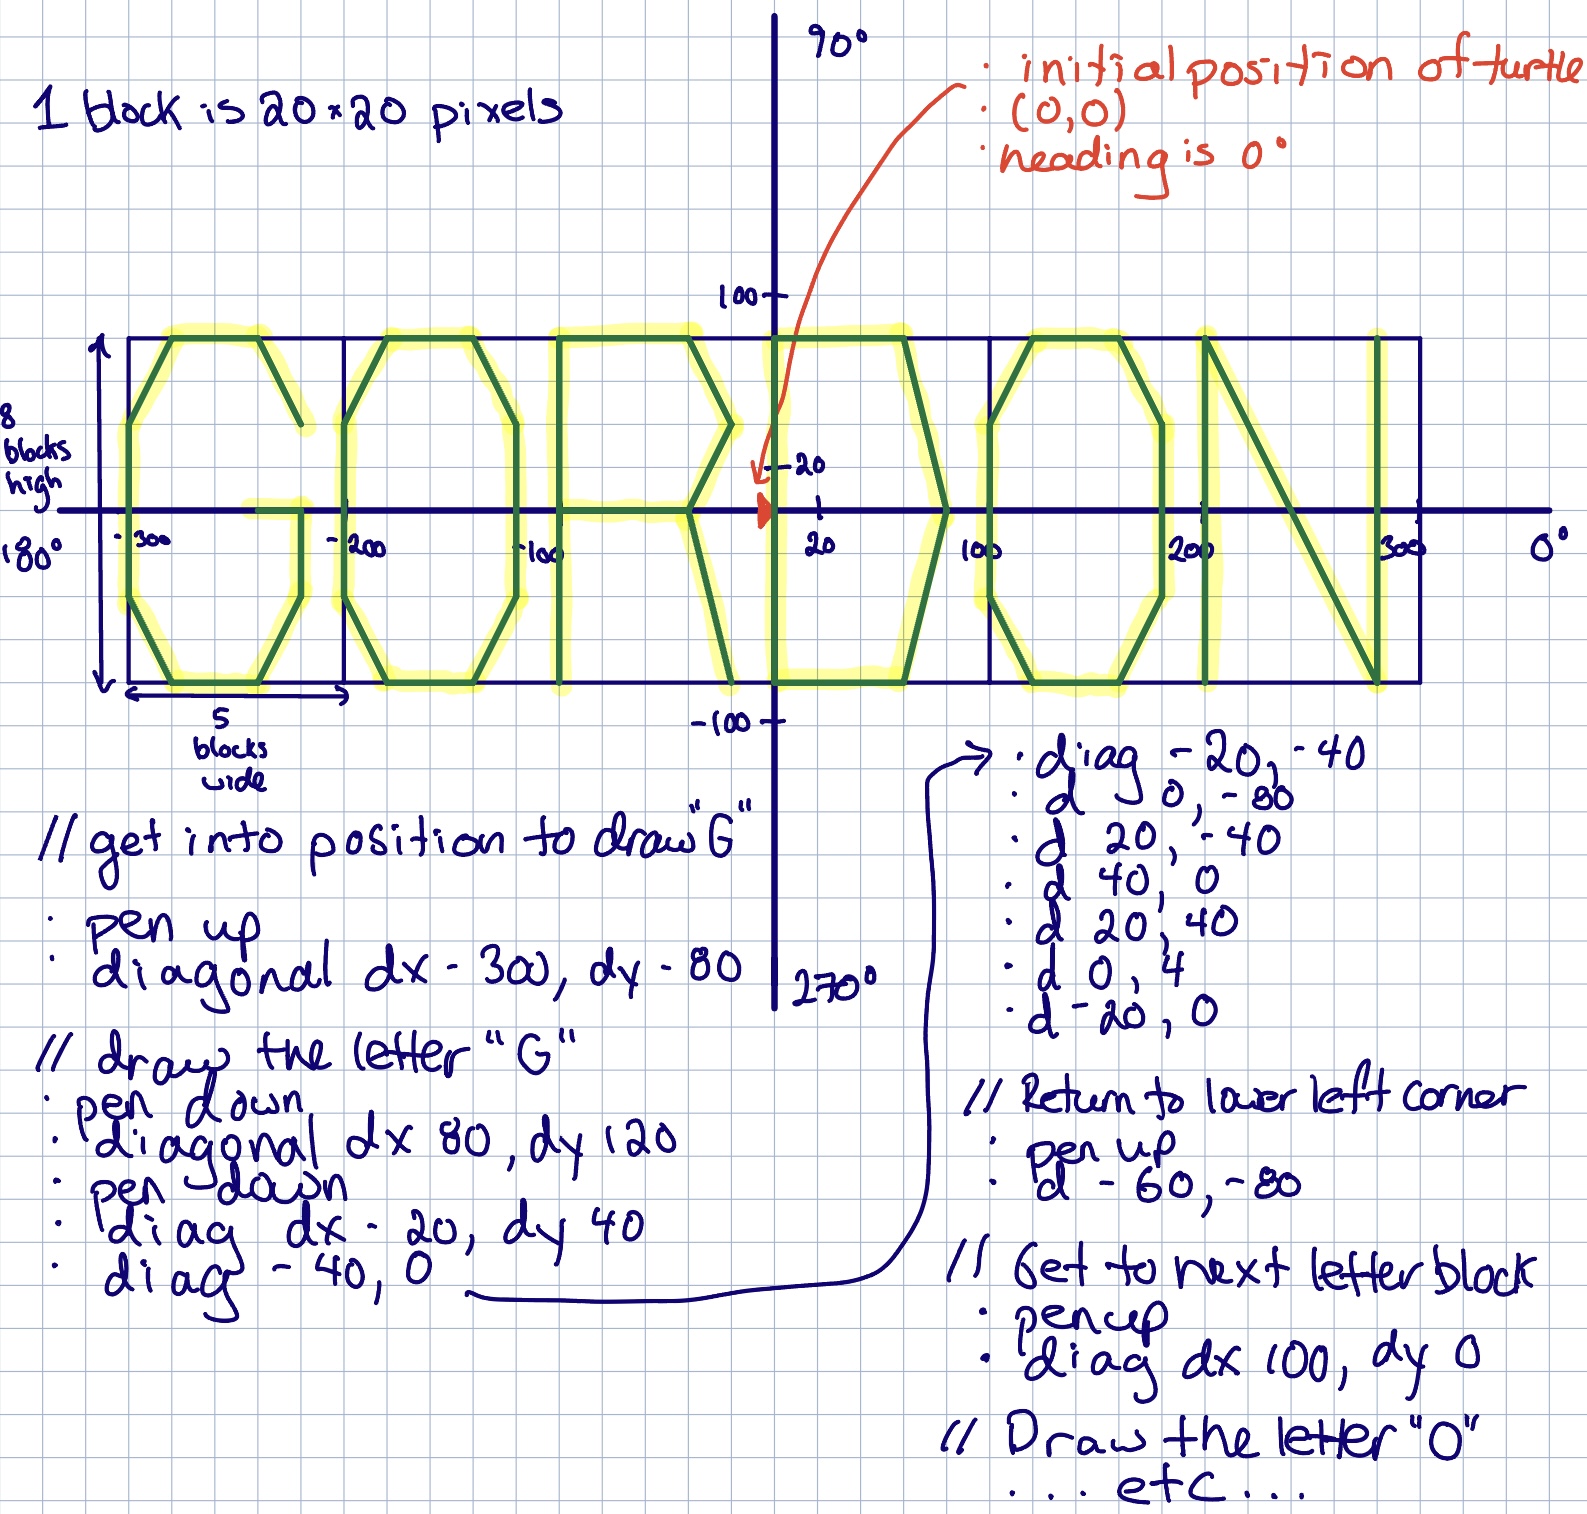 90°
1 block is 20×20 pixels
· initial position of turtle
· (0,0)
· heading is 0°
100
GORDON
8
blocks
high
20
180°
-300
-200
-100
20
100
200
300
0°
5
blocks
wide
-100
// get into position to draw "G"
· pen up
· diagonal dx -300, dy -80
270°
// draw the letter "G"
· pen down
· diagonal dx 80, dy 120
· pen down
· diag dx -20, dy 40
· diag -40, 0
· diag -20, -40
· d 0, -80
· d 20, -40
· d 40, 0
· d 20, 40
· d 0, 4
· d -20, 0
// Return to lower left corner
· pen up
· d -60, -80
// Get to next letter block
· pen up
· diag dx 100, dy 0
// Draw the letter "O"
... etc ...